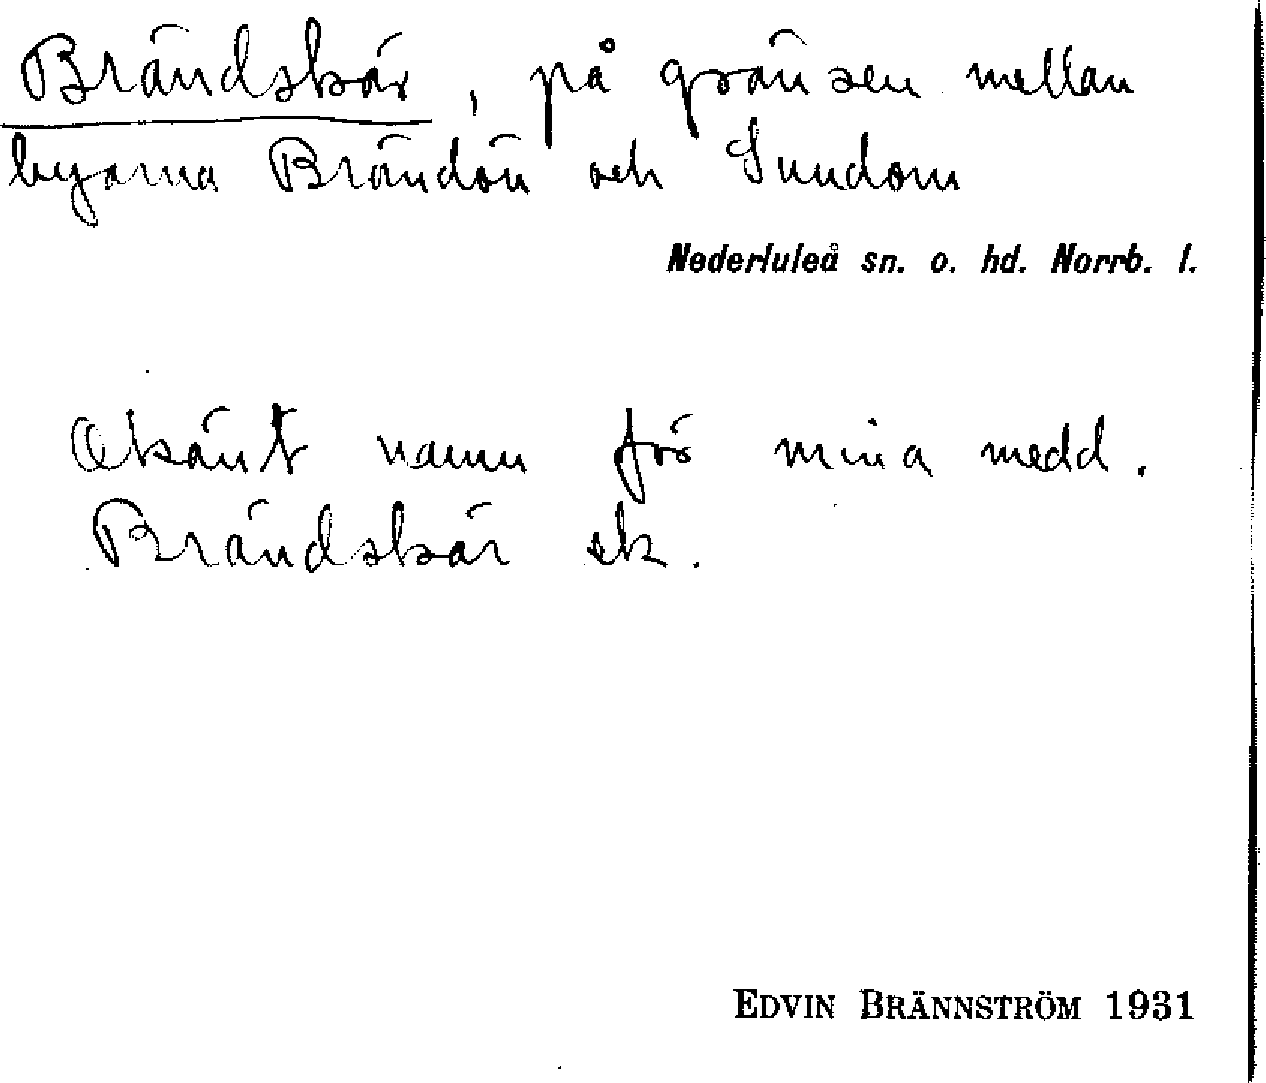 Brändskär, på gränsen mellan
byarna Brändön och Sundom
Nederluleå sn. o. hd. Norrb. l.
Okänt namn för mina medd.
Brändskär ek.
EDVIN BRÄNNSTRÖM 1931